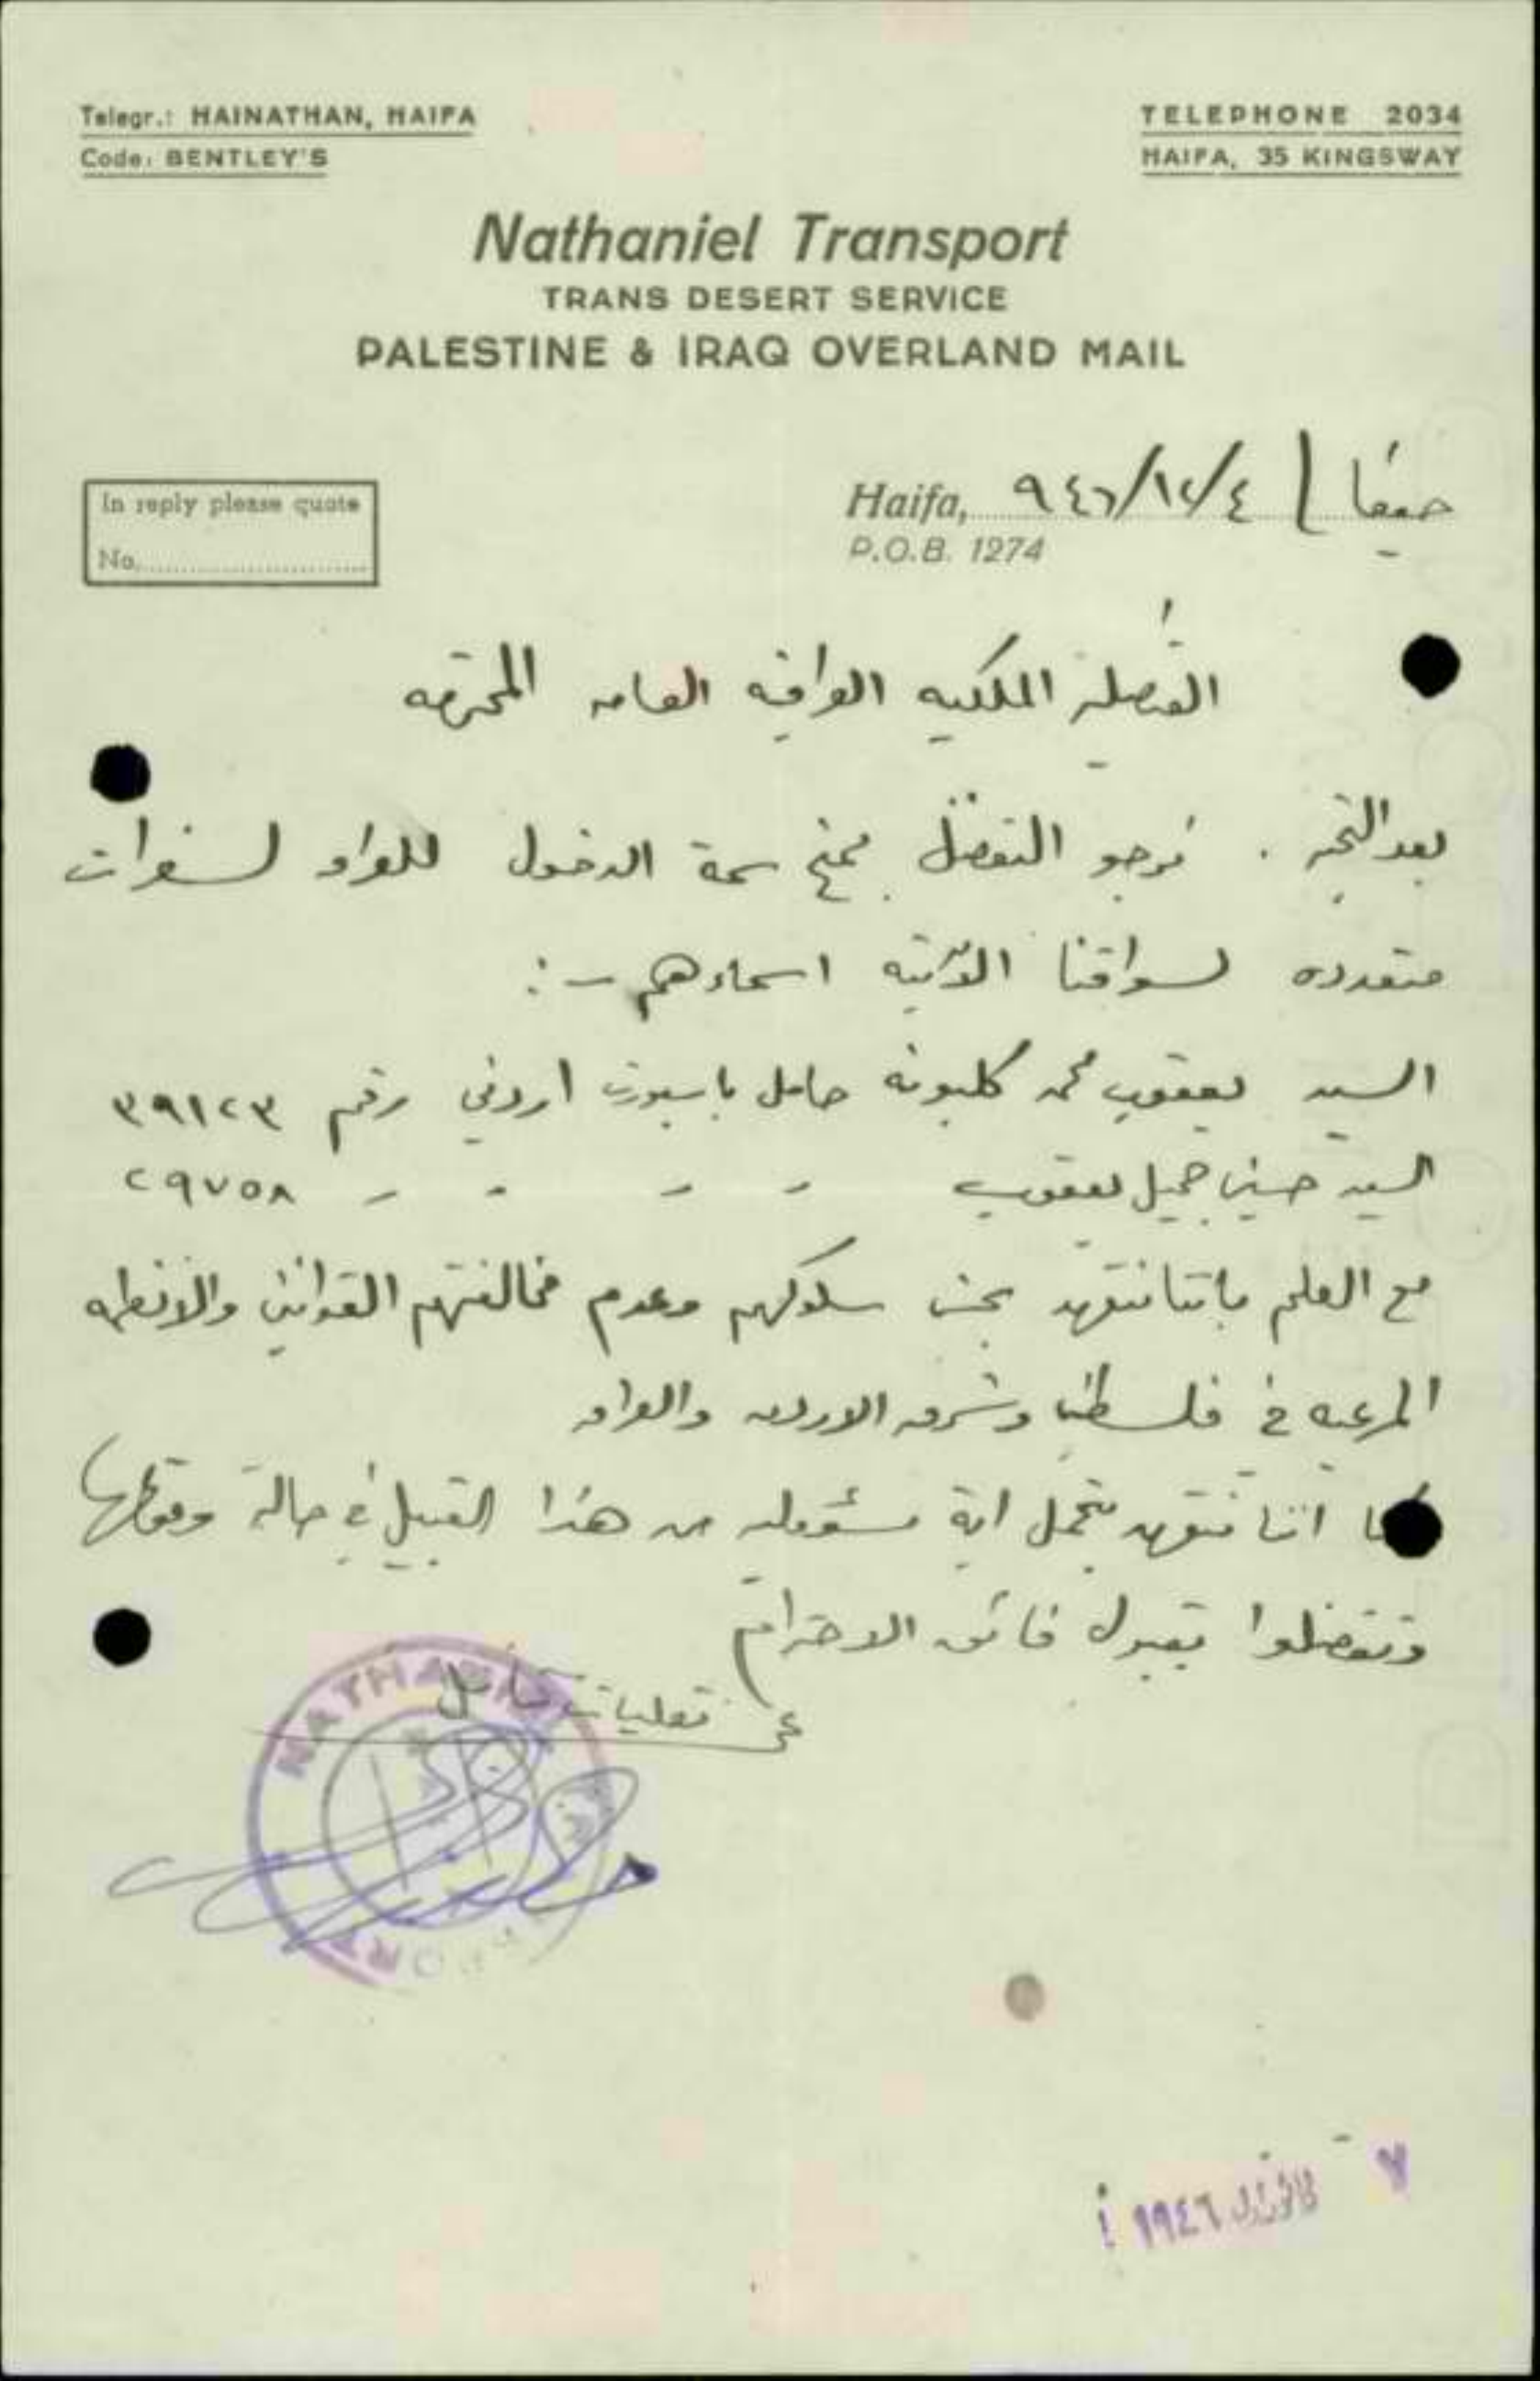 Telegr.: HAINATHAN, HAIFA
Code: BENTLEY'S
TELEPHONE 2034
HAIFA, 35 KINGSWAY
Nathaniel Transport
TRANS DESERT SERVICE
PALESTINE & IRAQ OVERLAND MAIL
In reply please quote
No.
حيفا / Haifa, ٩٤٦/١٢/٤
P.O.B. 1274
القنصلية الملكيه العراقيه العامه المحترمه
بعد التحيه . نرجو التفضل بمنح سمة الدخول للعراق لسفرات
متعدده لسواقنا الآتيه اسماءهم -:
السيد يعقوب محمد كلبونه حامل باسبورت اردني رقم ٣٩١٢٣
السيد حسين جميل يعقوب - - - - - ٢٩٧٥٨
مع العلم باننا نتعهد بحسن سلوكهم وعدم مخالفتهم القوانين والانظمه
المرعيه في فلسطين وشرق الاردن والعراق
كما اننا نتعهد بتحمل اية مسؤوليه من هذا القبيل في حالة وقوعها
وتفضلوا بقبول فائق الاحترام
عن نقليات
NATHANIEL
٧ - ١٩٤٦